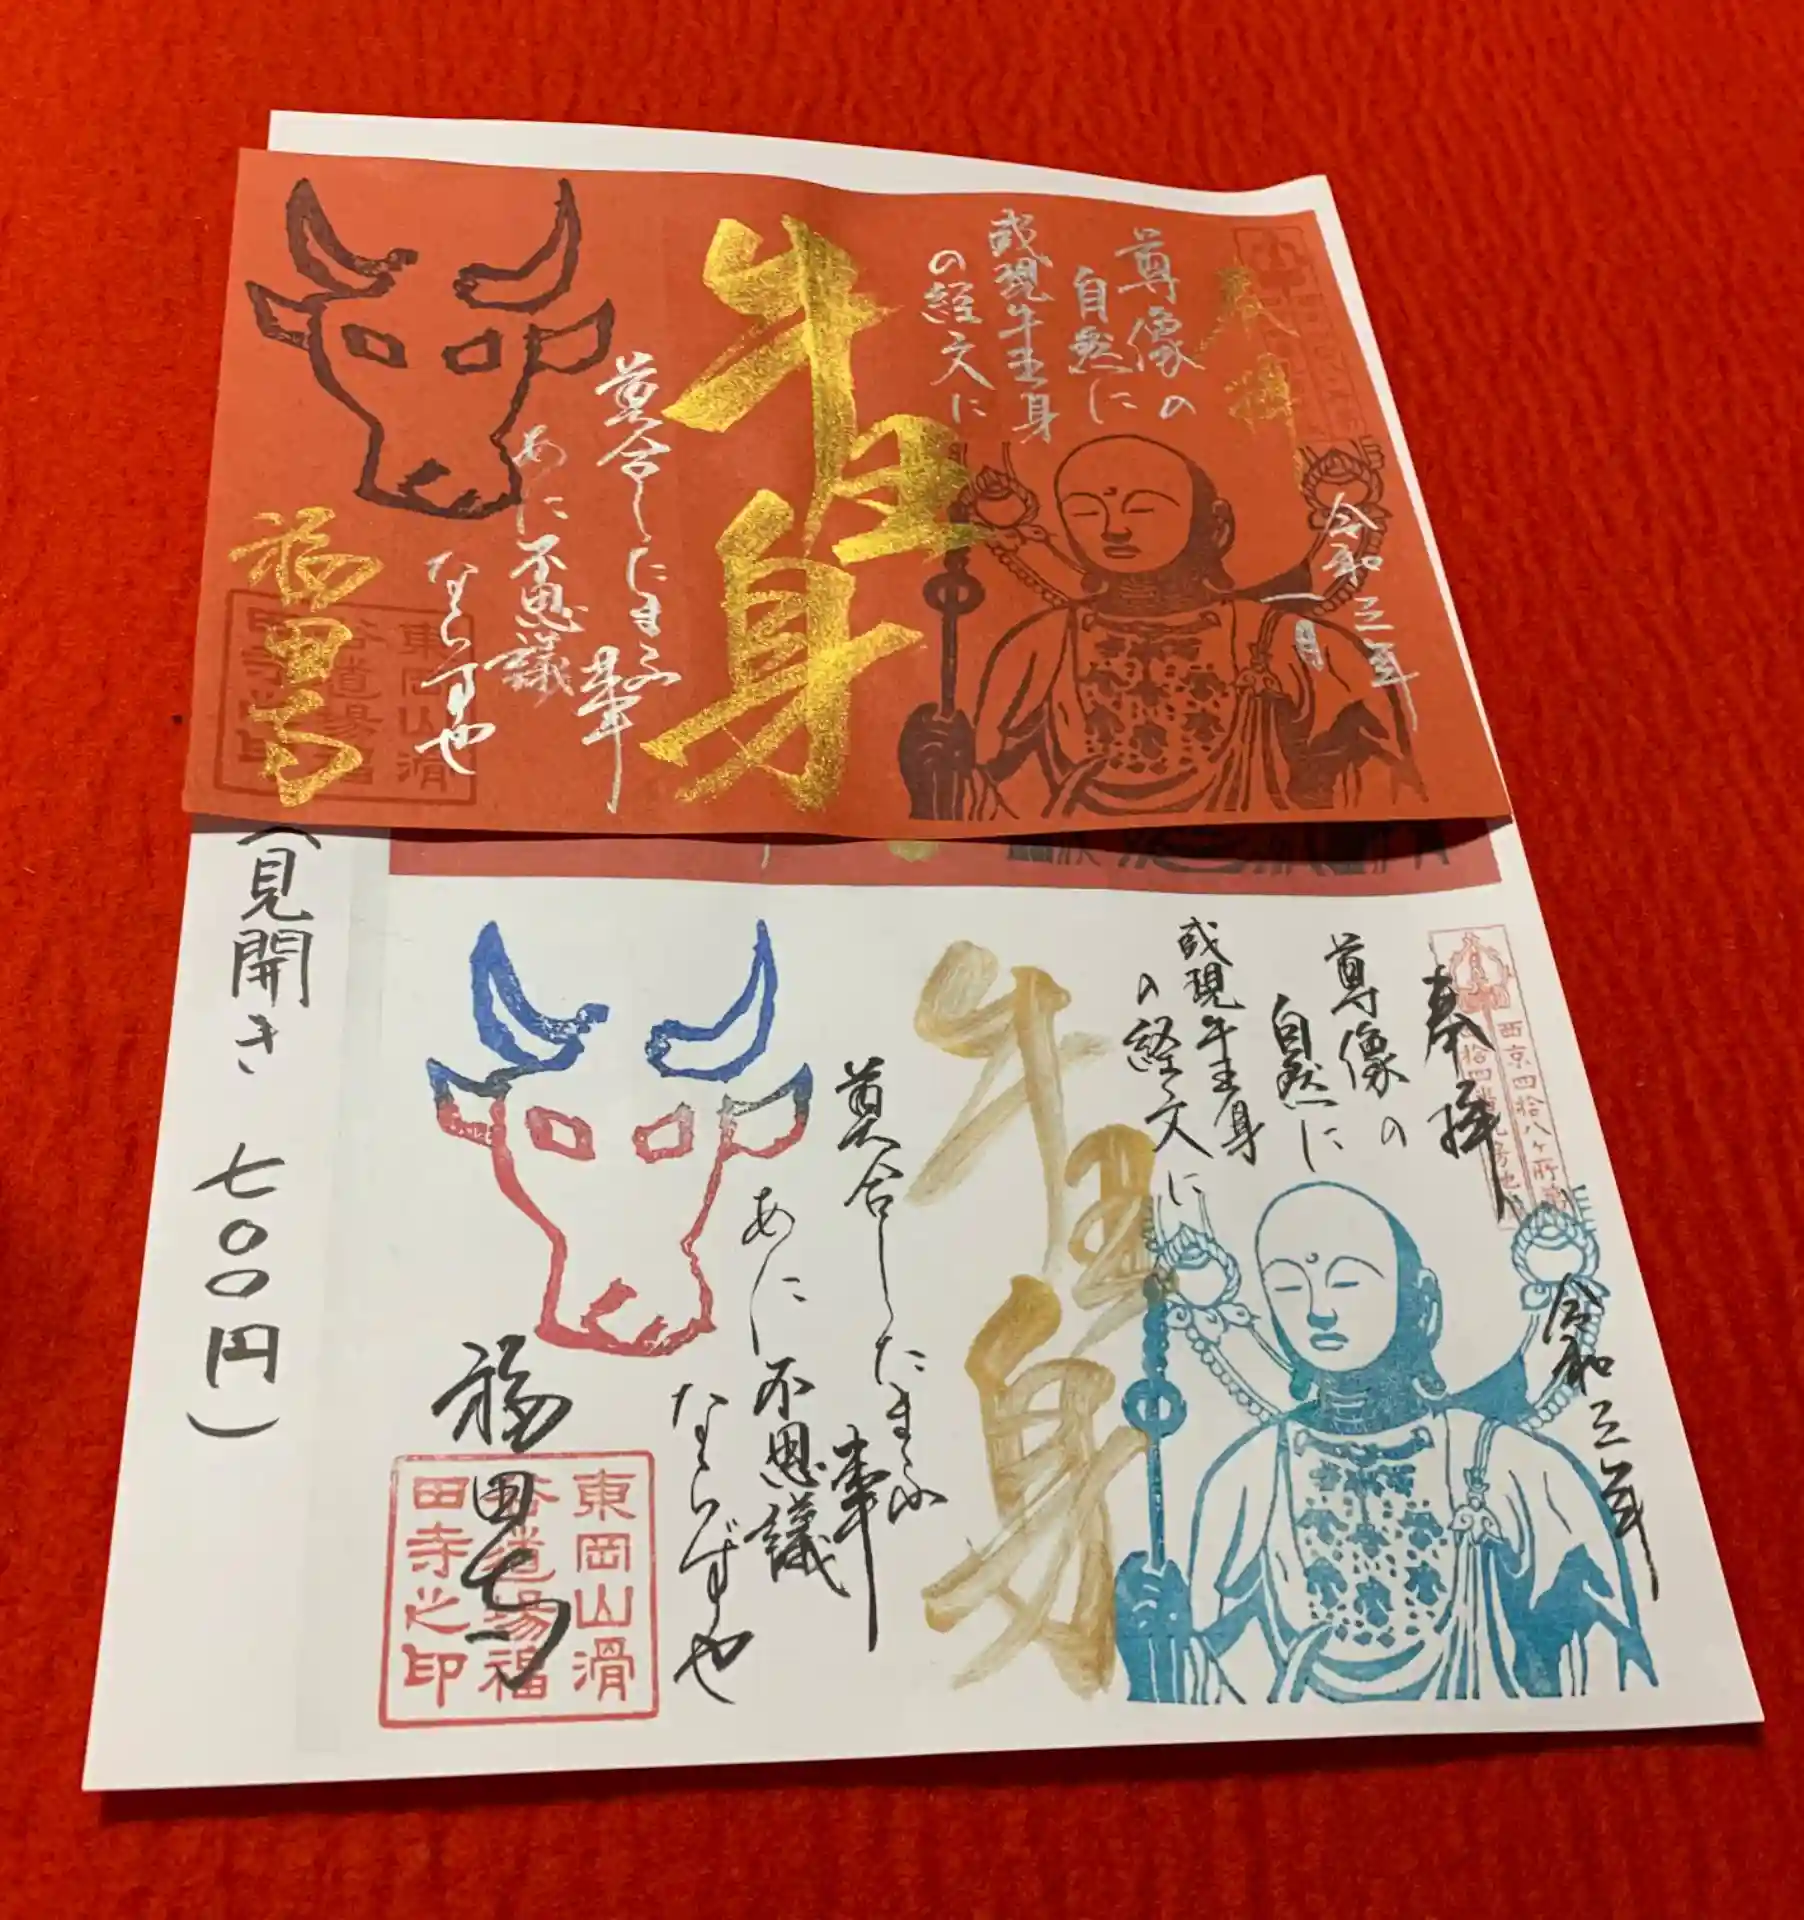 奉拝
令和三年
一月
尊像の
自然に
或現牛王身
の経文に
牛王
身
冥合したまふ
事
あに不思議
ならずや
福田寺
東岡山滑
谷道場福
田寺之印
(見開き 七〇〇円)
奉拝
西京四拾八ヶ所
令和三年
尊像の
自然に
或現牛王身
の経文に
牛王
身
冥合したまふ
事
あに不思議
ならずや
福田寺
東岡山滑
谷道場福
田寺之印